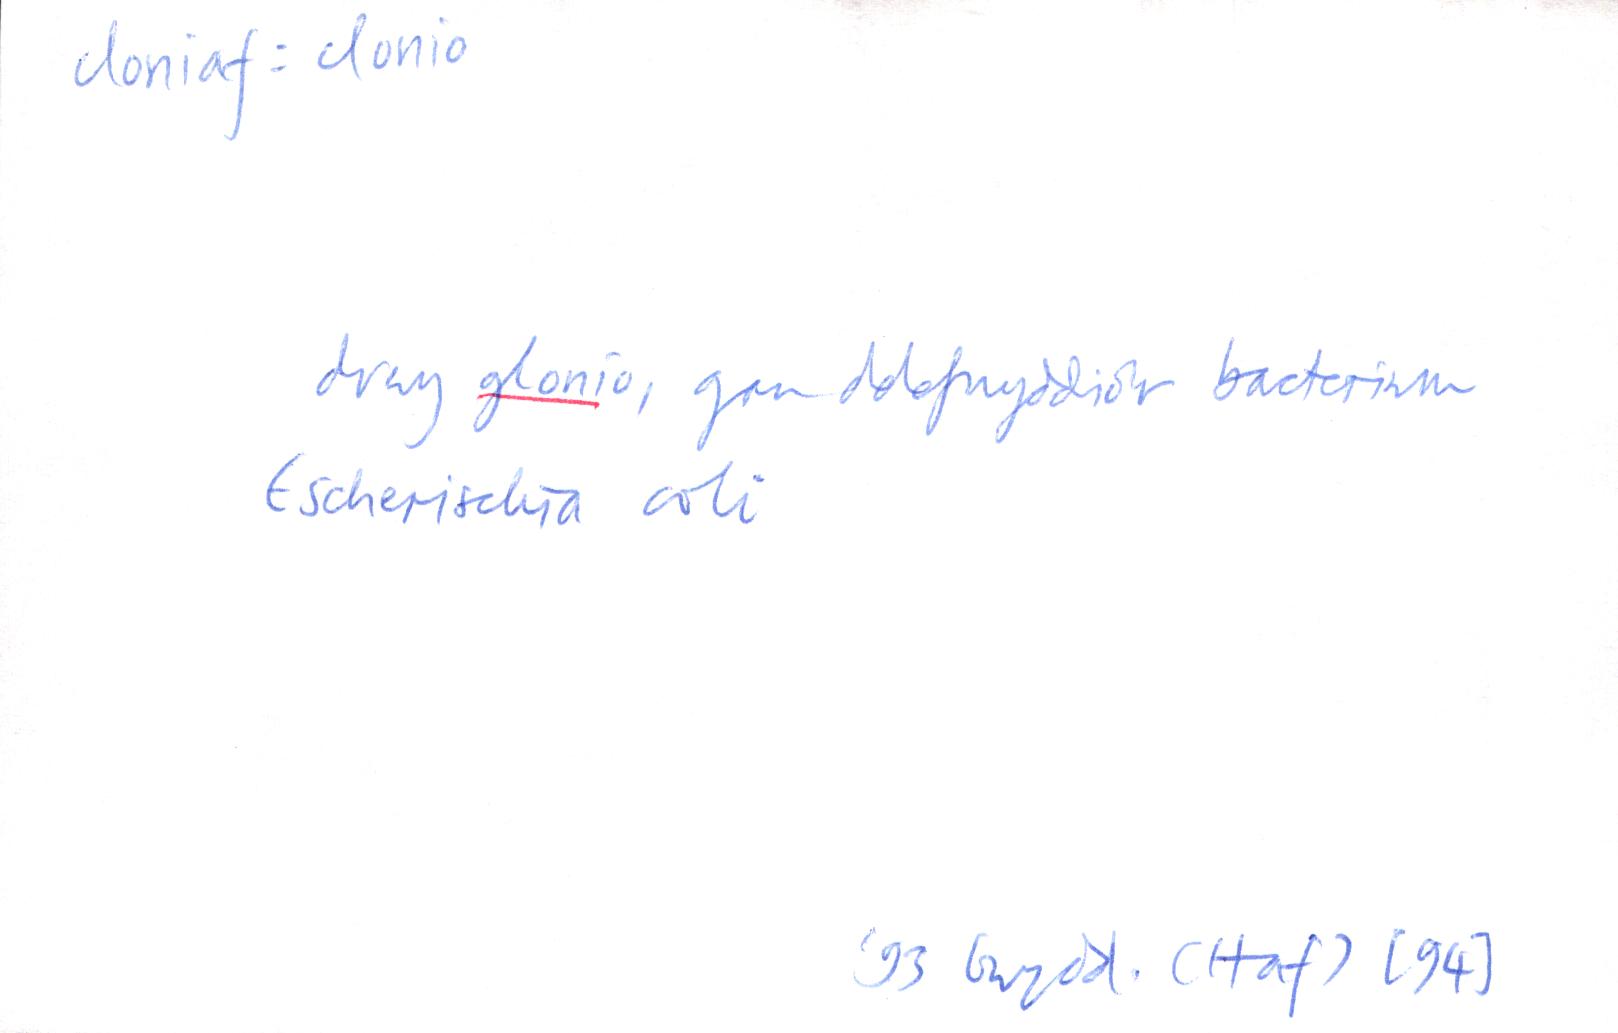 cloniaf: clonio
drwy glonio, gan ddefnyddio'r bacterium
Escherischia coli
'93 Gwydd. (Haf) [94]